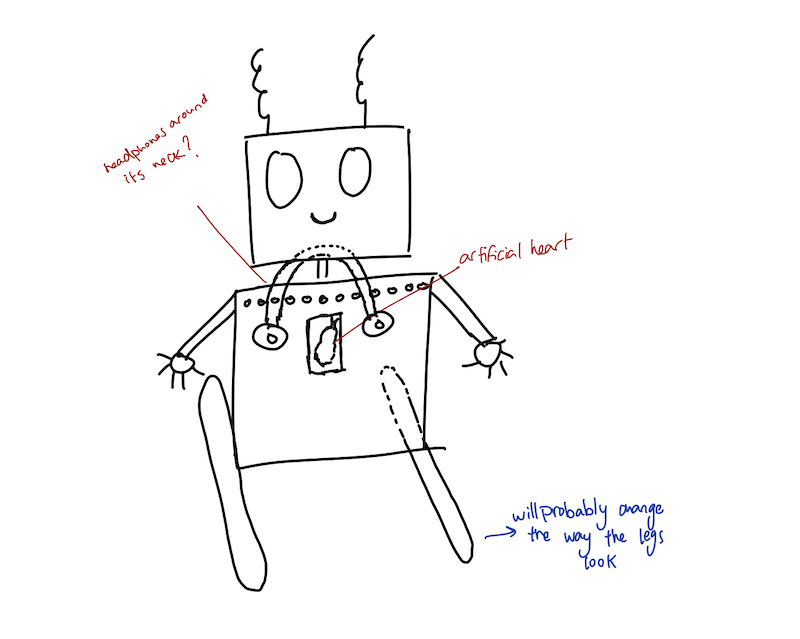 headphones around
its neck?
artificial heart
will probably change
the way the legs
look